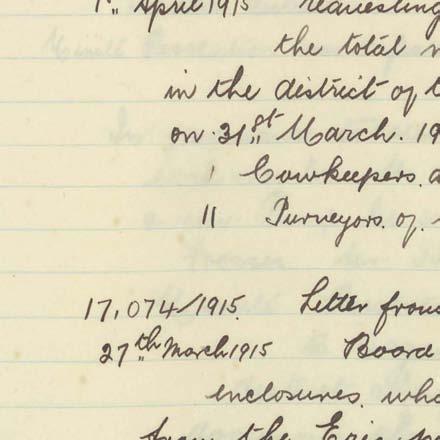 1st April 1915 requesting
the total
in the district of
on 31st March. 19
1 Cowkeepers.
11 Purveyors. of.
17,074/1915. Letter from
27th March 1915 Board
enclosures. who
from the Eric